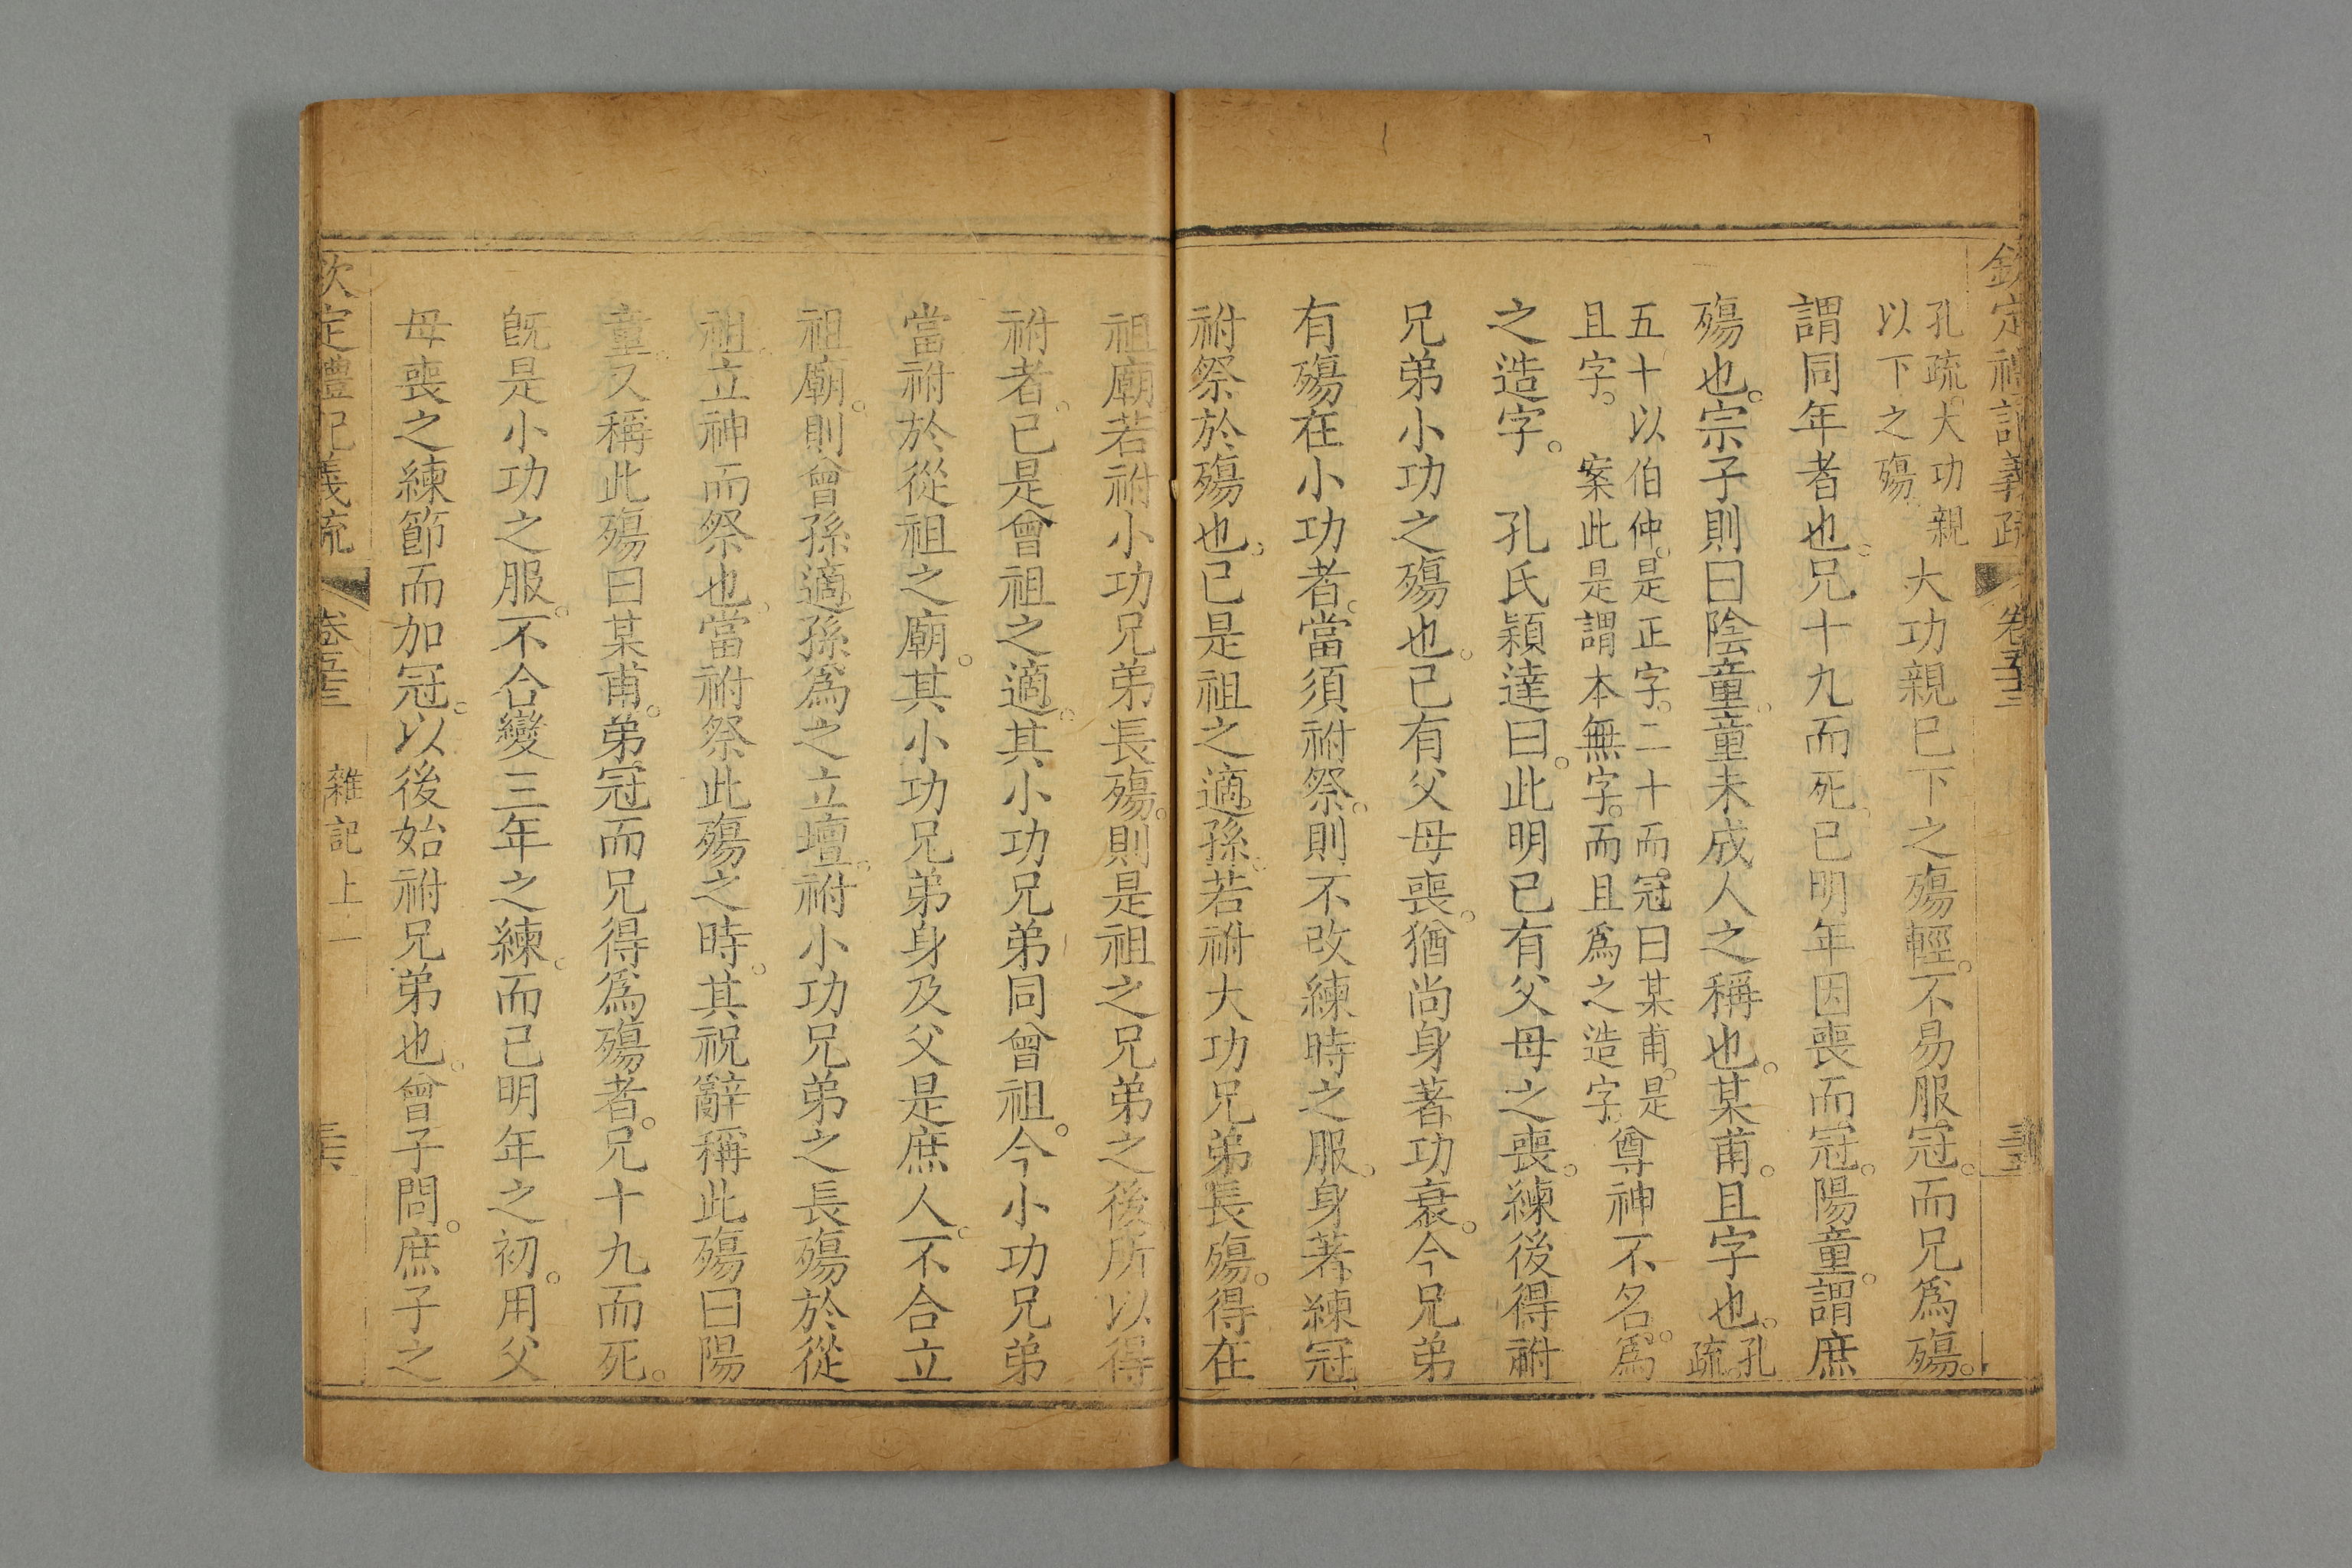 欽定禮記義疏 卷五十三
孔疏。大功親
以下之殤
大功親已下之殤輕。不易服冠。而兄爲殤。
謂同年者也。兄十九而死。已明年因喪而冠。陽童。謂庶
殤也。宗子則曰陰童。童未成人之稱也。某甫。且字也。
孔
疏
五十以伯仲。是正字。二十而冠曰某甫。是
且字。 案此是謂本無字。而且爲之造字。
尊神不名。爲
之造字。 孔氏穎達曰。此明已有父母之喪。練後得祔
兄弟小功之殤也。已有父母喪。猶尚身著功衰。今兄弟
有殤在小功者。當須祔祭。則不改練時之服。身著練冠
祔祭於殤也。已是祖之適孫。若祔大功兄弟長殤。得在
祖廟。若祔小功兄弟長殤。則是祖之兄弟之後所以得
祔者。已是曾祖之適。其小功兄弟同曾祖。今小功兄弟
當祔於從祖之廟。其小功兄弟身及父是庶人。不合立
祖廟。則曾孫適孫爲之立壇。祔小功兄弟之長殤於從
祖立神而祭也。當祔祭此殤之時。其祝辭稱此殤曰陽
童。又稱此殤曰某甫。弟冠而兄得爲殤者。兄十九而死。
旣是小功之服。不合變三年之練。而已明年之初。用父
母喪之練節而加冠。以後始祔兄弟也。曾子問。庶子之
欽定禮記義疏 卷五十三 雜記上一